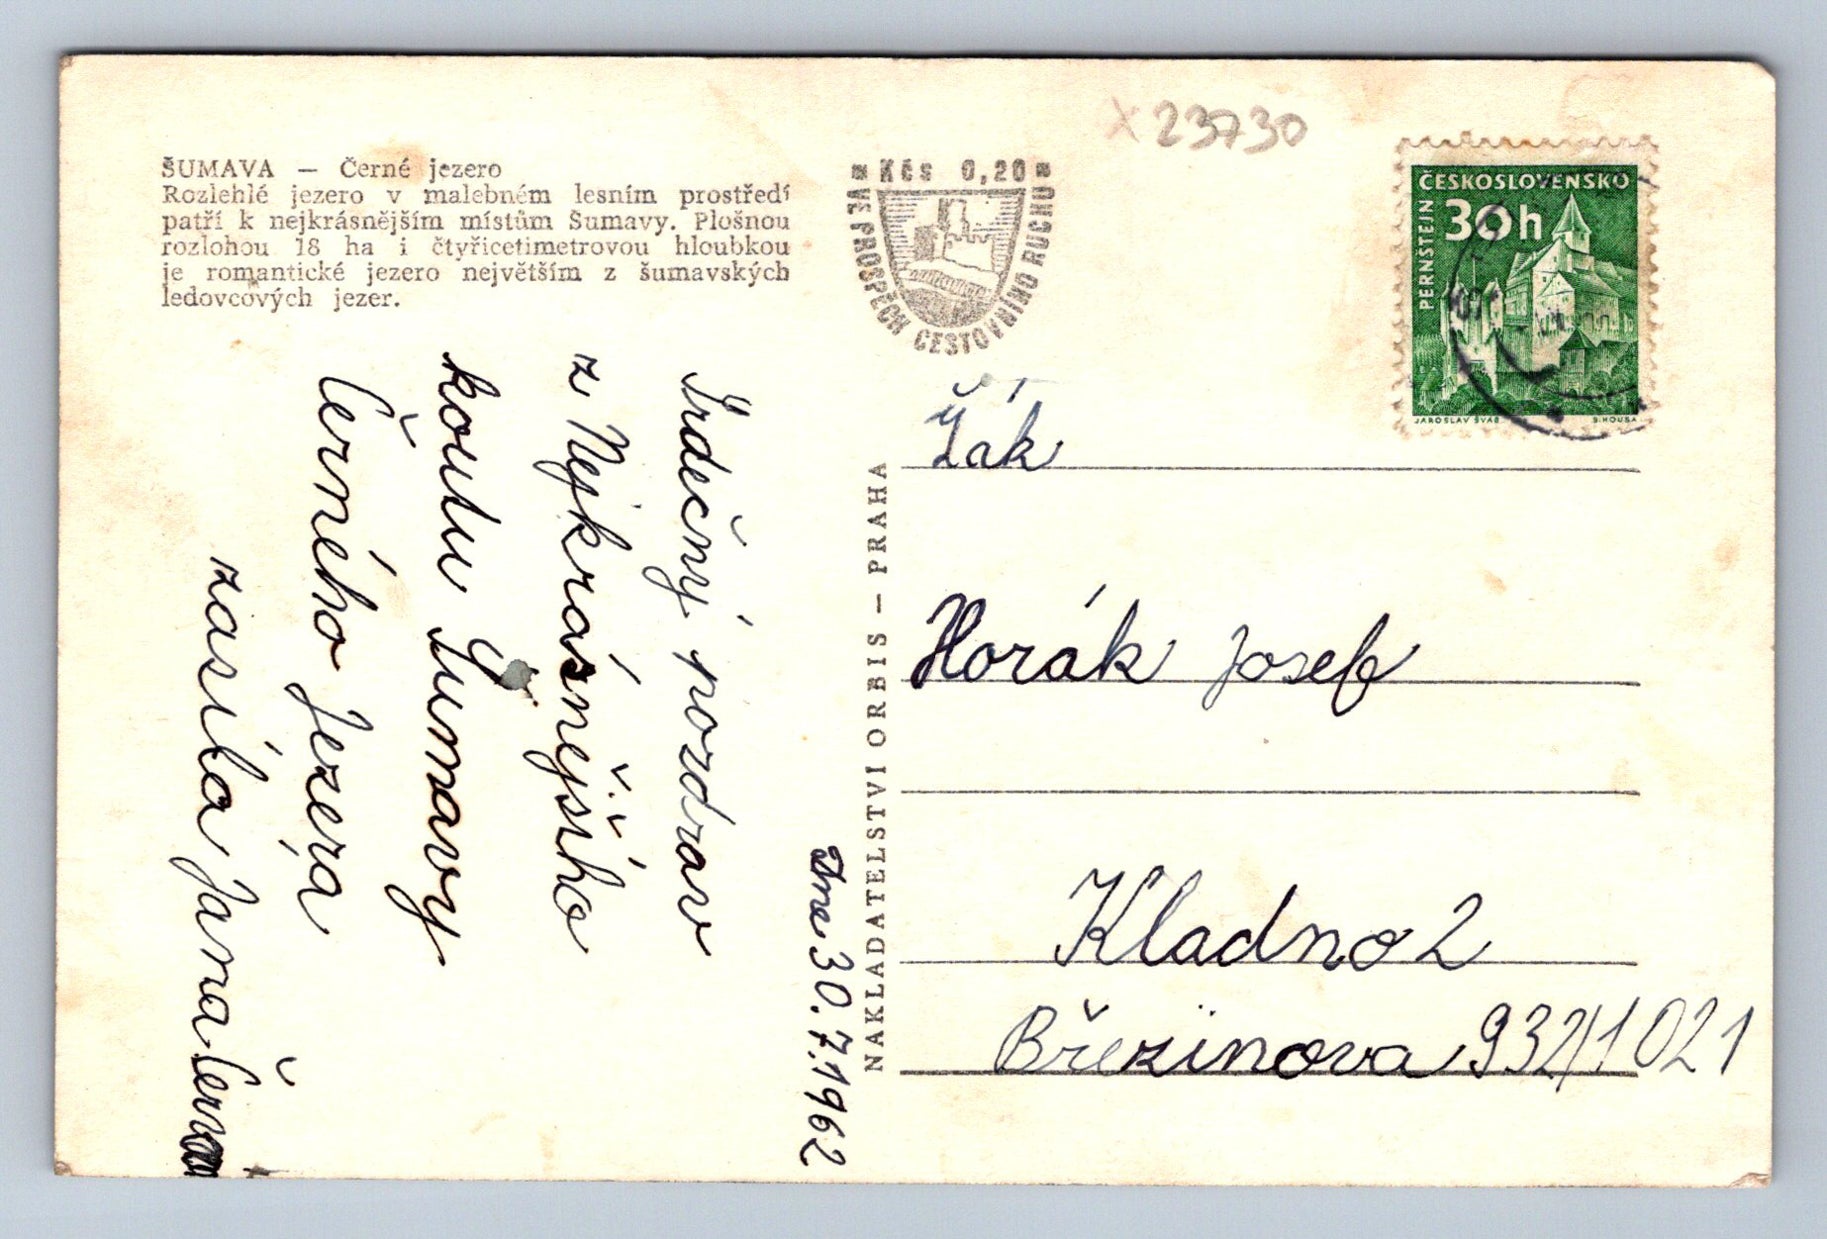 ŠUMAVA — Černé jezero
Rozlehlé jezero v malebném lesním prostředí
patří k nejkrásnějším místům Šumavy. Plošnou
rozlohou 18 ha i čtyřicetimetrovou hloubkou
je romantické jezero největším z šumavských
ledovcových jezer.
Kčs 0,20
VE PROSPĚCH CESTOVNÍHO RUCHU
x 23730
ČESKOSLOVENSKO
30h
PERNŠTEJN
JAROSLAV ŠVÁB
Srdečný pozdrav
z Nejkrásnějšího
koutu Šumavy
Černého Jezera
zasíla Jana
Dne 30.7.1962
NAKLADATELSTVÍ ORBIS — PRAHA
Žák
Horák Josef
Kladno 2
Březinova 932/1021